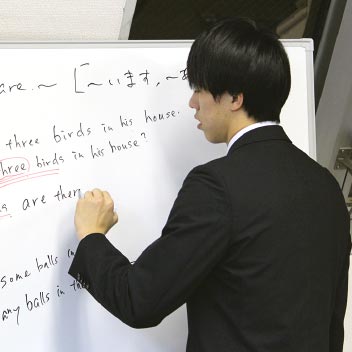 are. ~ [~います, ~あ
three birds in his house.
three birds in his house?
are ther
some balls in
any balls in the